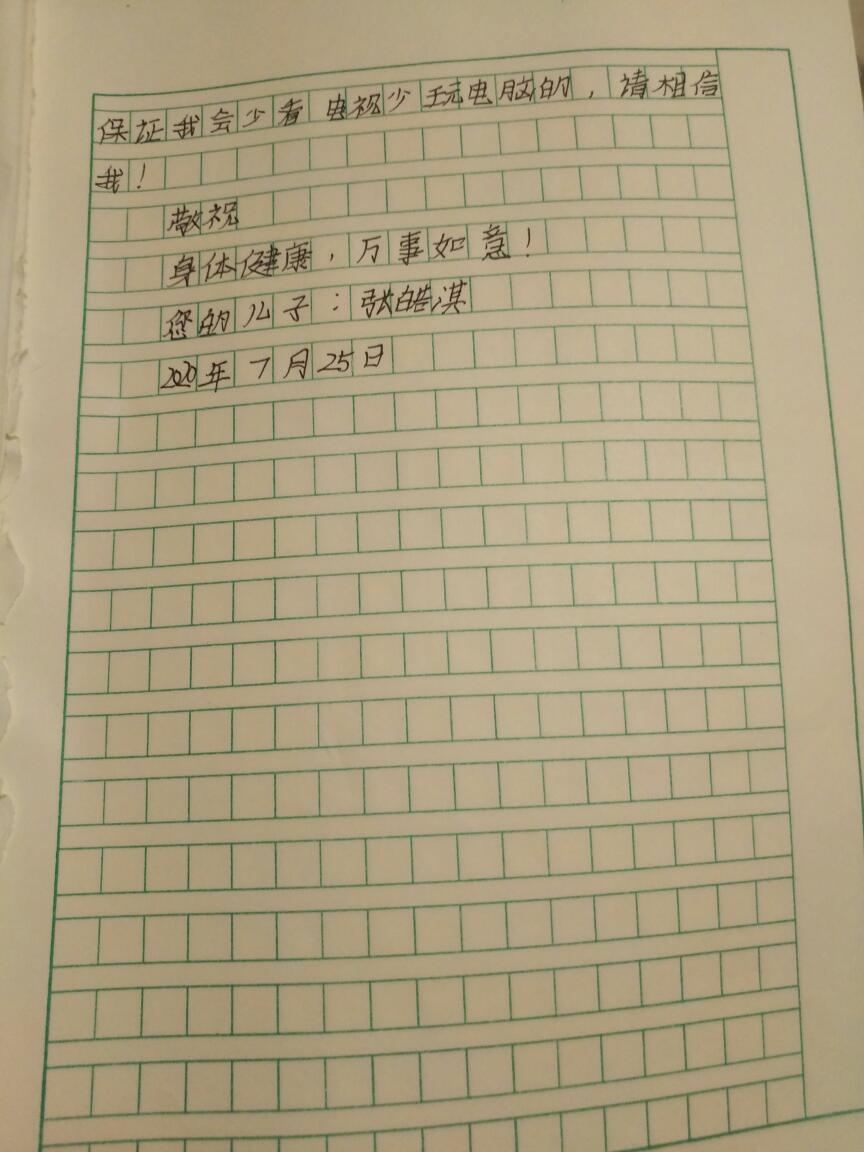 保证我会少看电视少玩电脑的，请相信
我！
敬祝
身体健康，万事如意！
您的儿子：张皓淇
2020年7月25日